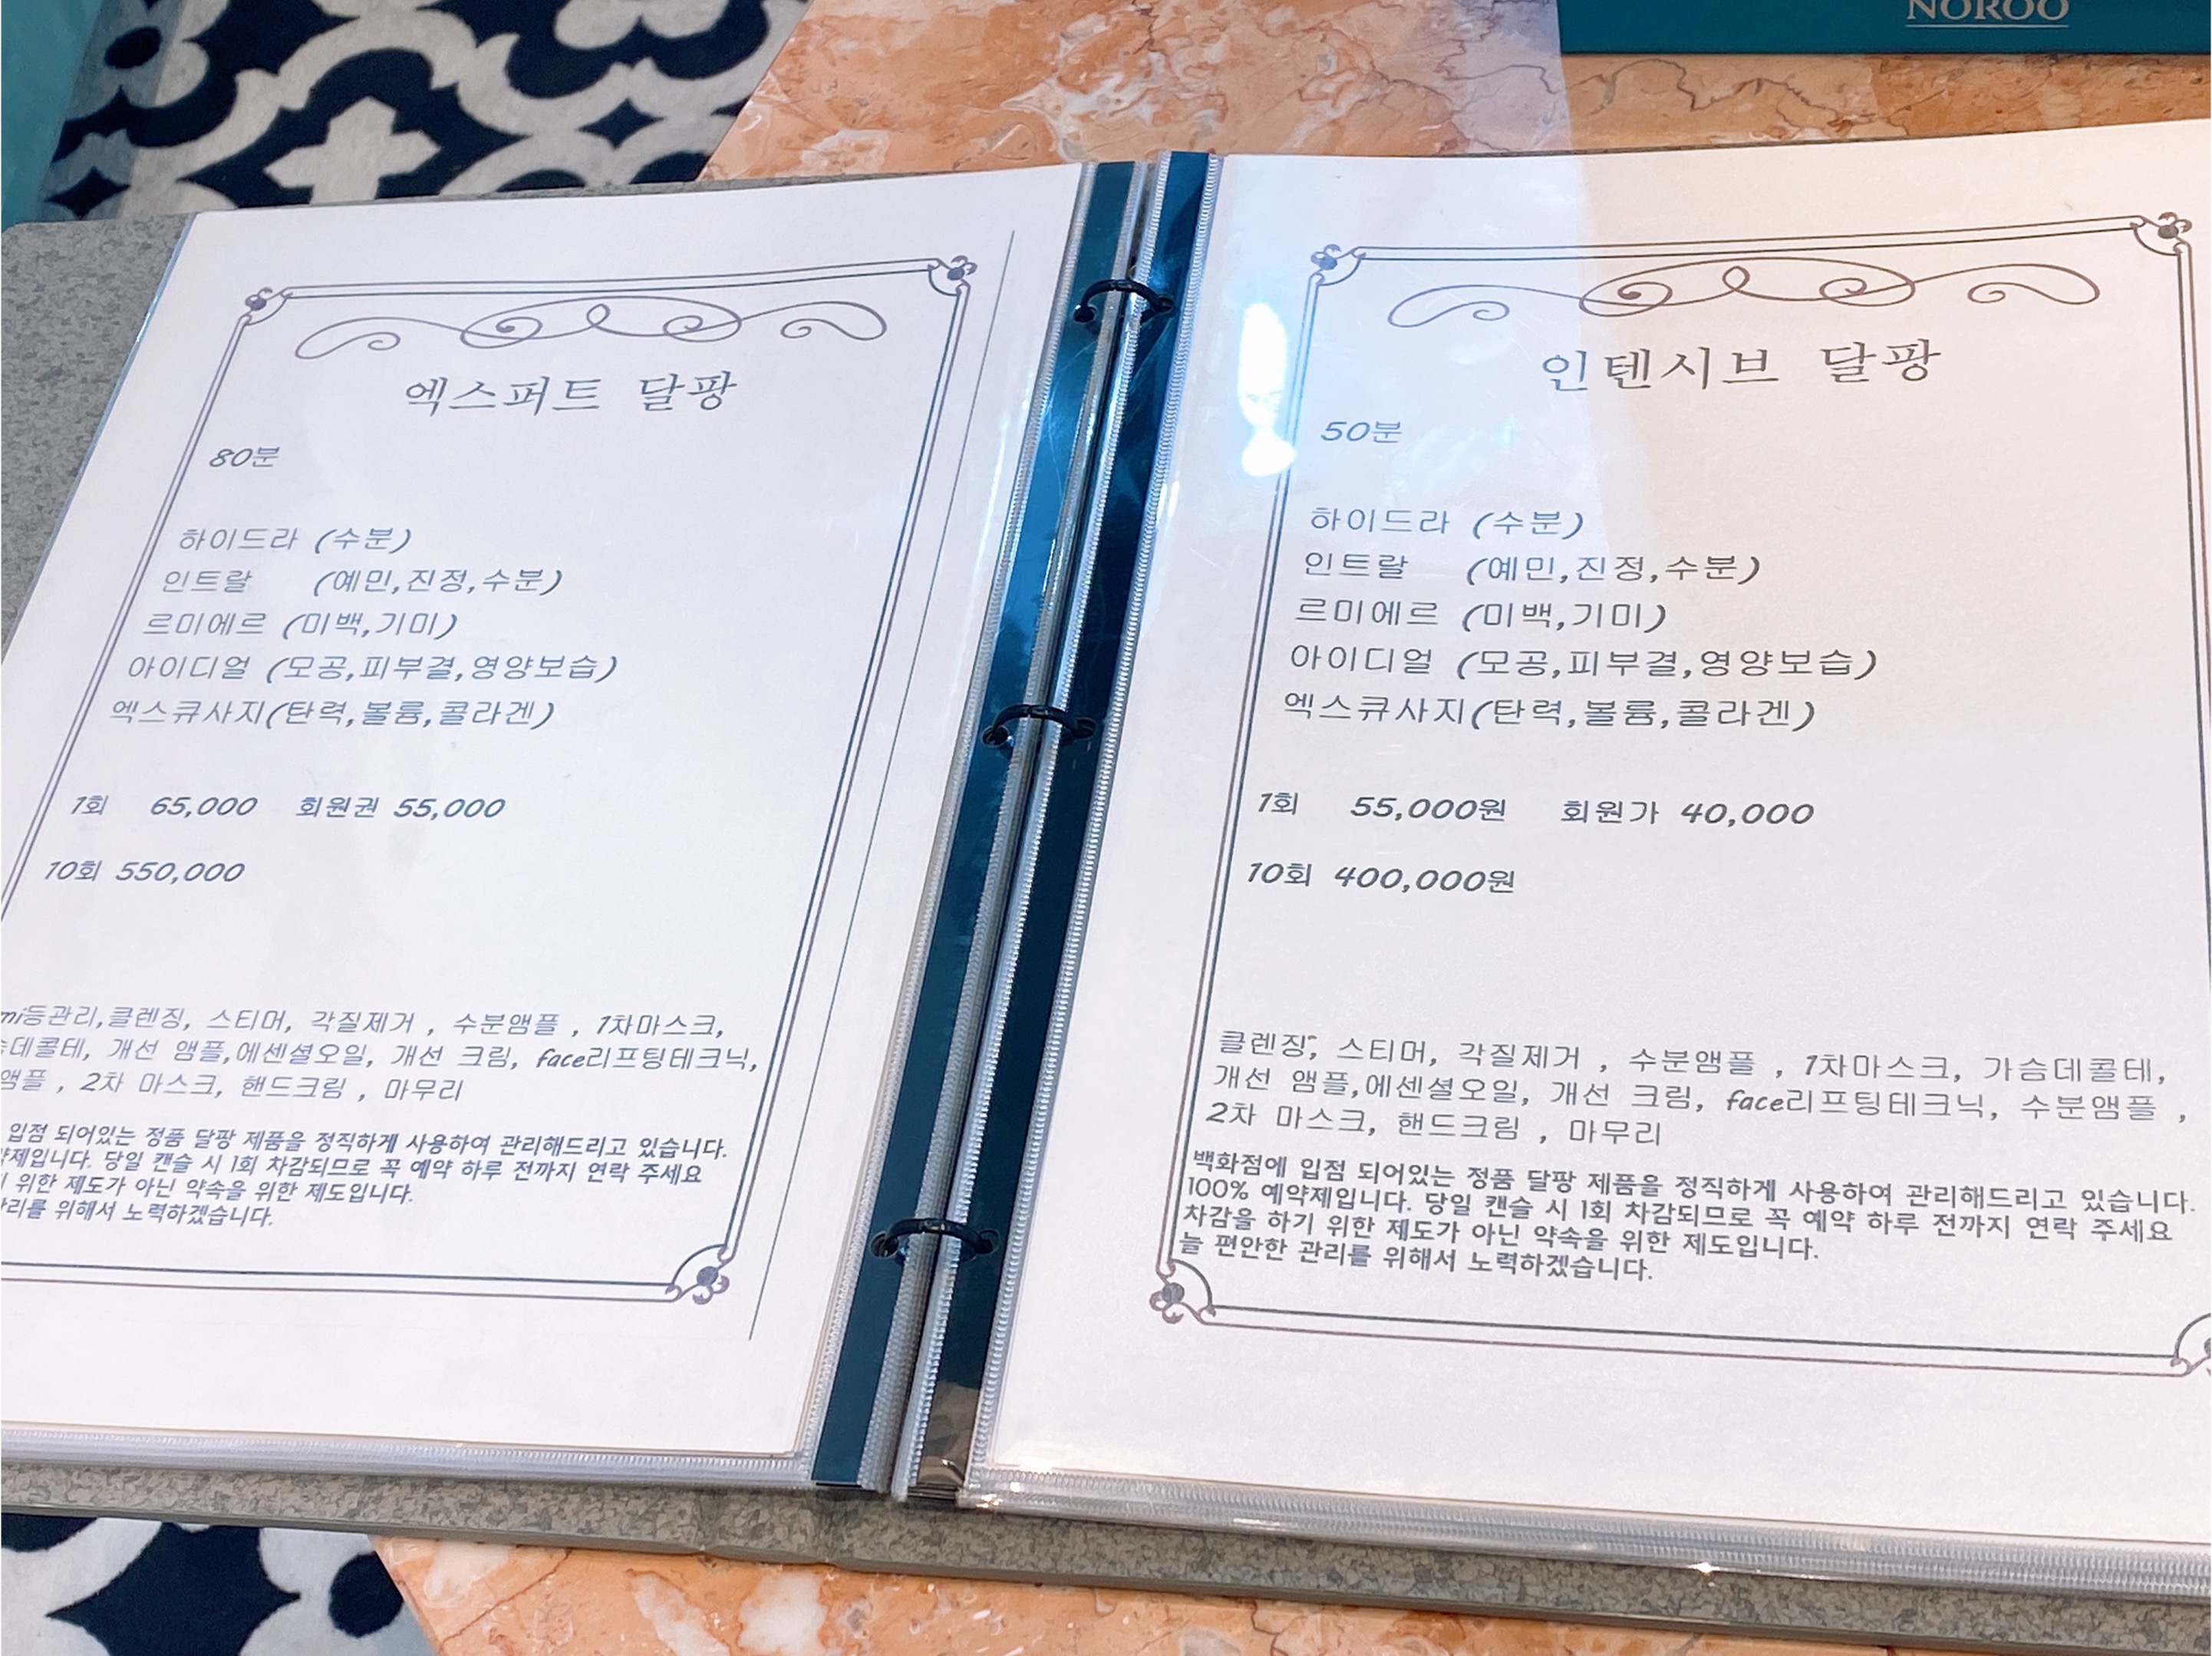 NOROO
엑스퍼트 달팡
80분
하이드라 (수분)
인트랄 (예민,진정,수분)
르미에르 (미백,기미)
아이디얼 (모공,피부결,영양보습)
엑스큐사지(탄력,볼륨,콜라겐)
1회 65,000 회원권 55,000
10회 550,000
mi등관리,클렌징, 스티머, 각질제거 , 수분앰플 , 1차마스크,
데콜테, 개선 앰플,에센셜오일, 개선 크림, face리프팅테크닉,
앰플 , 2차 마스크, 핸드크림 , 마무리
입점 되어있는 정품 달팡 제품을 정직하게 사용하여 관리해드리고 있습니다.
약제입니다. 당일 캔슬 시 1회 차감되므로 꼭 예약 하루 전까지 연락 주세요
위한 제도가 아닌 약속을 위한 제도입니다.
관리를 위해서 노력하겠습니다.
인텐시브 달팡
50분
하이드라 (수분)
인트랄 (예민,진정,수분)
르미에르 (미백,기미)
아이디얼 (모공,피부결,영양보습)
엑스큐사지(탄력,볼륨,콜라겐)
1회 55,000원 회원가 40,000
10회 400,000원
클렌징, 스티머, 각질제거 , 수분앰플 , 1차마스크, 가슴데콜테,
개선 앰플,에센셜오일, 개선 크림, face리프팅테크닉, 수분앰플 ,
2차 마스크, 핸드크림 , 마무리
백화점에 입점 되어있는 정품 달팡 제품을 정직하게 사용하여 관리해드리고 있습니다.
100% 예약제입니다. 당일 캔슬 시 1회 차감되므로 꼭 예약 하루 전까지 연락 주세요
차감을 하기 위한 제도가 아닌 약속을 위한 제도입니다.
늘 편안한 관리를 위해서 노력하겠습니다.